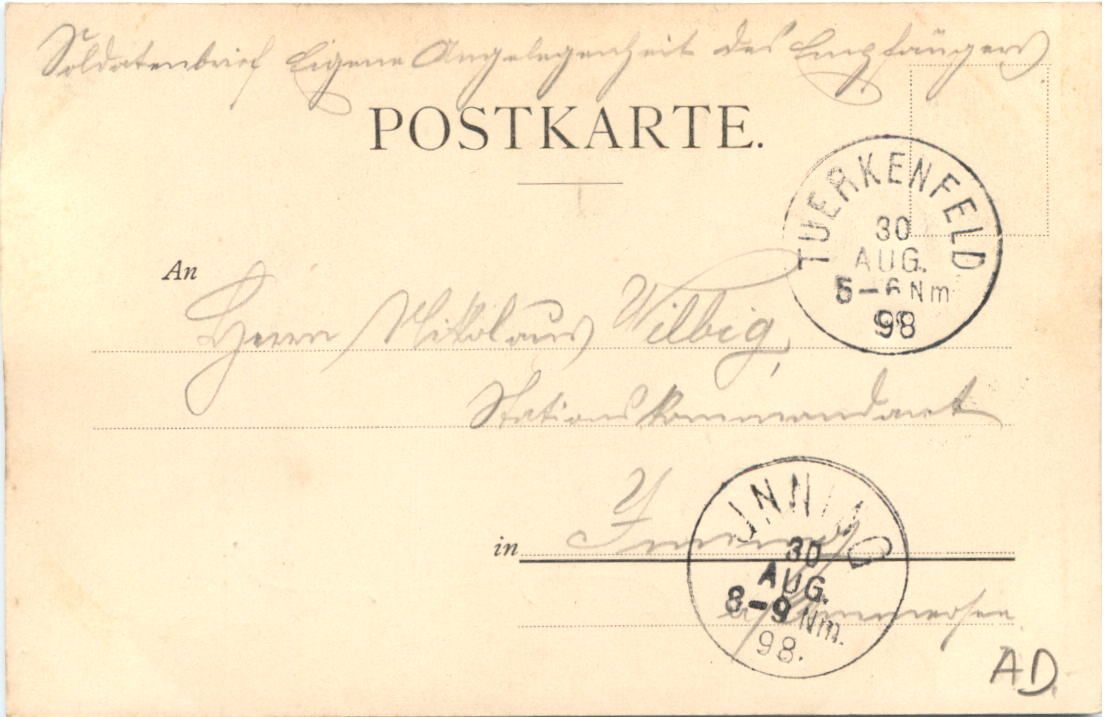 Soldatenbrief Eigene Angelegenheit des Empfängers.
POSTKARTE.
TUERKENFELD
30
AUG.
5-6 Nm
98
An
Herrn Nikolaus Wilbig,
Stationskommandant
in
INNING
30
AUG.
8-9 Nm.
98.
a/Ammersee.
AD.